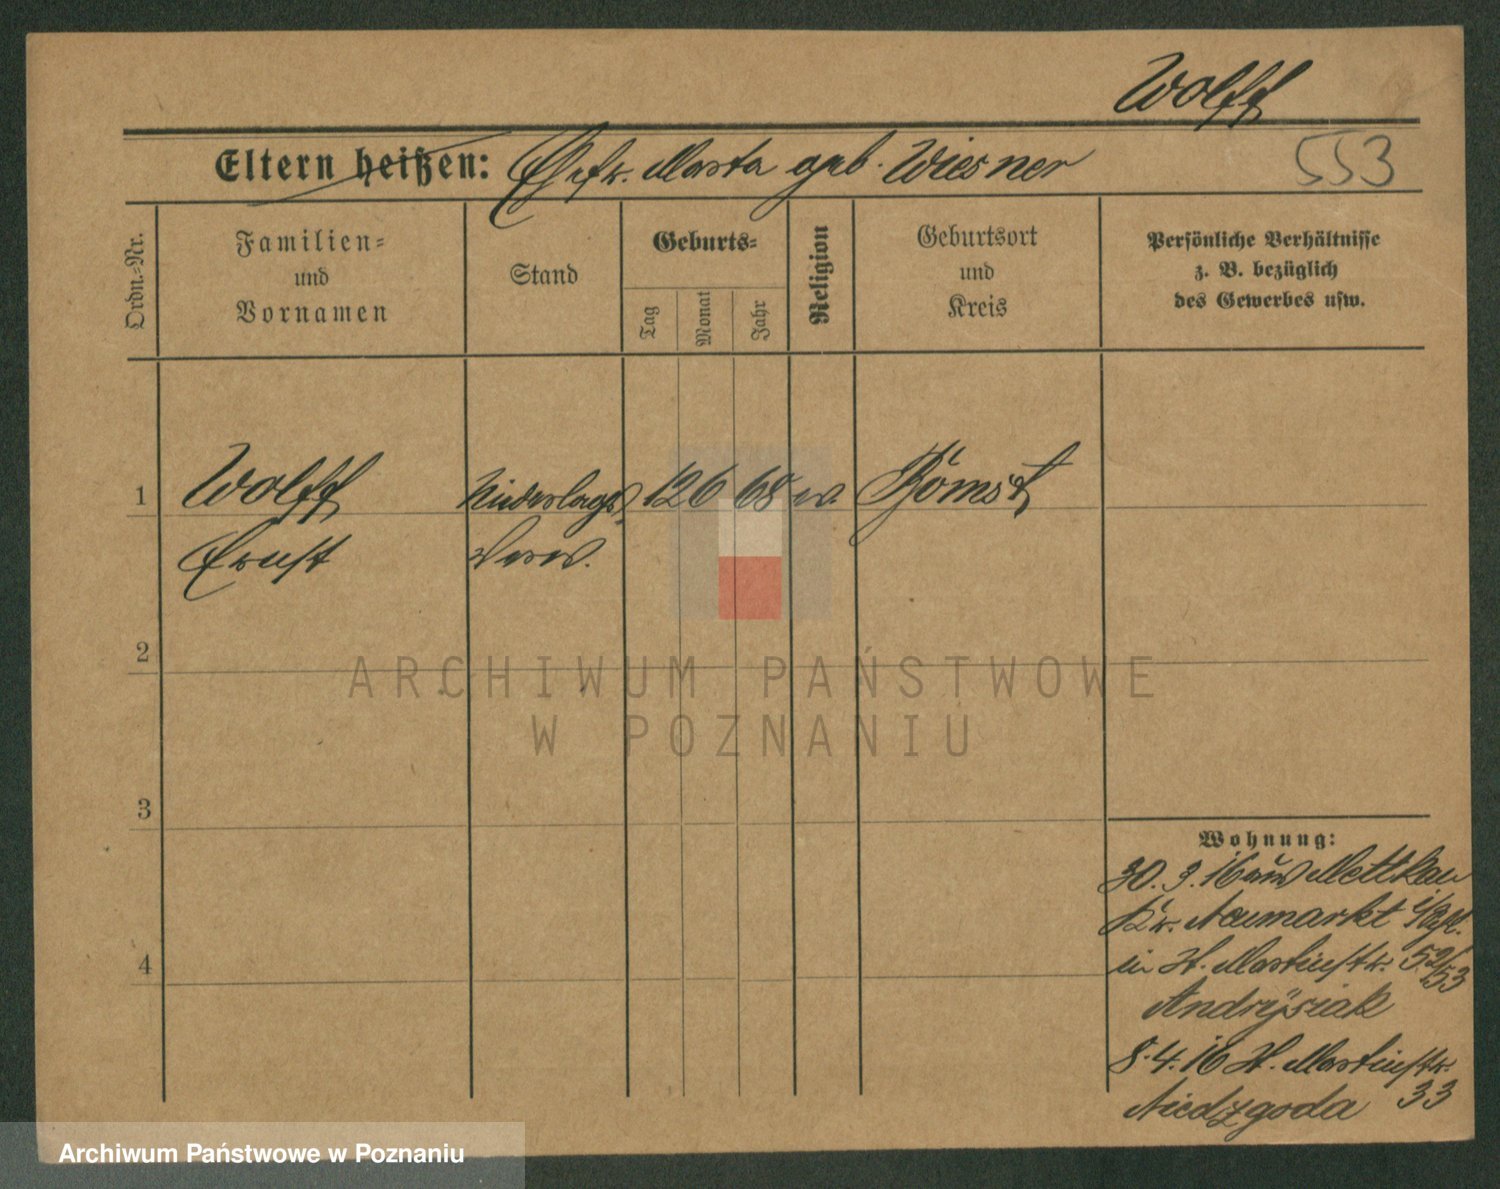 Wolff
553
Eltern heißen: Ehefr. Marta geb. Wiesner
Ordn.-Nr.
Familien-
und
Vornamen
Stand
Geburts-
Tag
Monat
Jahr
Religion
Geburtsort
und
Kreis
Persönliche Verhältnisse
z. B. bezüglich
des Gewerbes usw.
1
Wolff
Niederlags
12 6 68
ev.
Bomst
Ernst
Verw.
2
ARCHIWUM PAŃSTWOWE
W POZNANIU
3
4
Wohnung:
30. 3. 16 aus Mettkau
Kr. Neumarkt i/Schl.
in St. Martinstr. 52/53
Andrysiak
8. 4. 16 St. Martinstr.
33
Niedzgoda
Archiwum Państwowe w Poznaniu